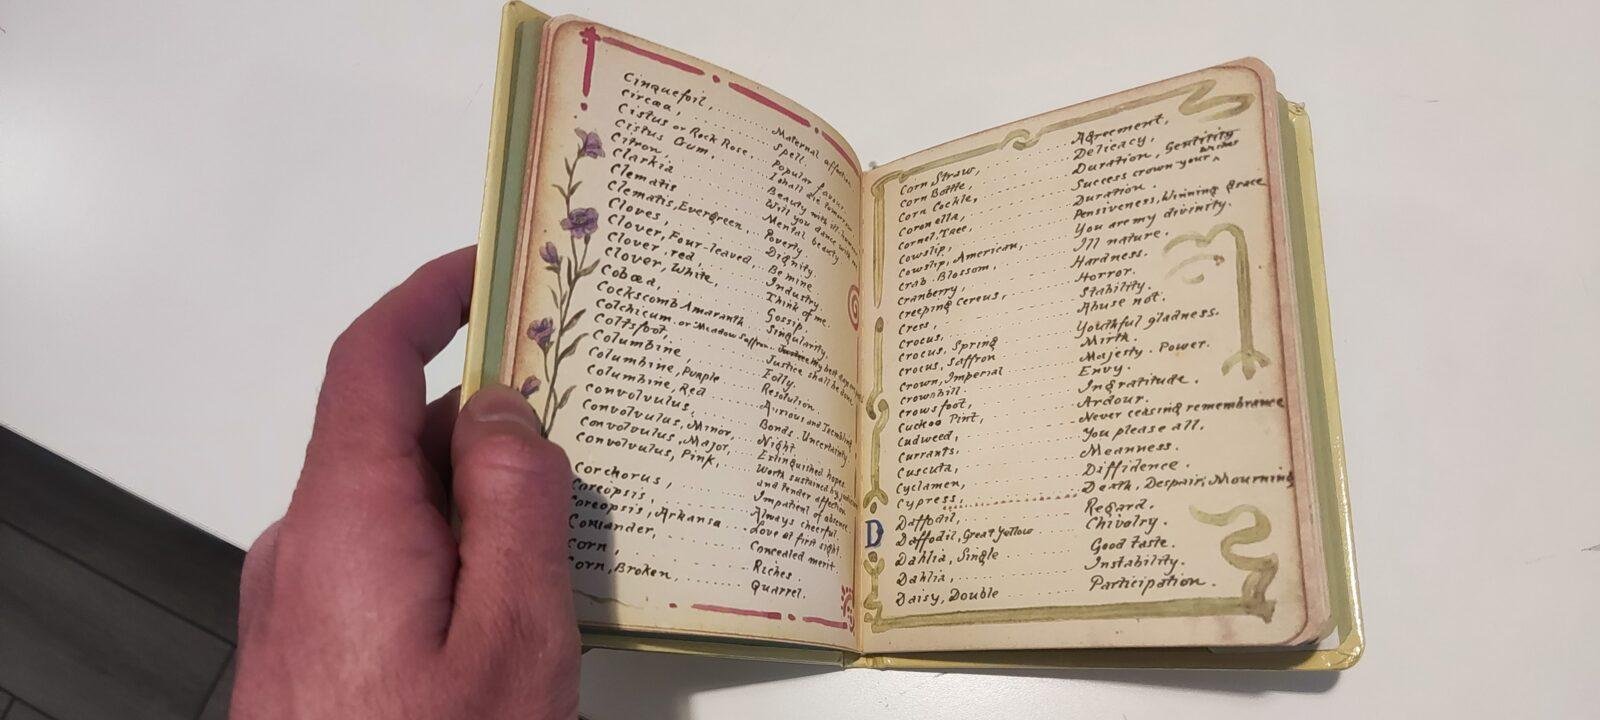 Cinquefoil, ........ Maternal affection
Circæa, ........ Spell.
Cistus or Rock Rose, ... Popular favour
Cistus Gum, ........ I shall die tomorrow
Citron, ........ Beauty with ill-humour
Clarkia ........ Will you dance with me
Clematis ........ Mental beauty
Clematis, Evergreen, .. Poverty.
Cloves, ........ Dignity.
Clover, Four-leaved, .. Be mine
Clover, red, ........ Industry
Clover, White, ........ Think of me.
Cobœa, ........ Gossip.
Cockscomb Amaranth Singularity,
Colchicum or Meadow Saffron ... My best days
Coltsfoot, ........ Justice shall be done
Columbine, ........ Folly.
Columbine, Purple ...... Resolution.
Columbine, Red ...... Anxious and Trembling
Convolvulus, ........ Bonds. Uncertainty
Convolvulus, Minor, ... Night
Convolvulus, Major, .... Extinguished hopes
Convolvulus, Pink, .... Worth sustained by
and tender affection
Corchorus, ........ Impatient of absence
Coreopsis, ........ Always cheerful.
Coreopsis, Arkansa .... Love at first sight.
Coriander, ........ Concealed merit.
Corn, ........ Riches.
Corn, Broken, ........ Quarrel.
Corn Straw, ........ Agreement,
Corn Bottle, ........ Delicacy,
Corn Cockle, ........ Duration, Gentility
Coronella, ........ Success crown your wishes
Cornel, Tree, ........ Duration.
Cowslip, ........ Pensiveness, Winning grace
Cowslip, American, ..... You are my divinity.
Crab Blossom, ........ Ill nature.
Cranberry, ........ Hardness.
Creeping Cereus, ....... Horror.
Cress, ........ Stability.
Crocus, ........ Abuse not.
Crocus, Spring ........ Youthful gladness.
Crocus, Saffron ........ Mirth.
Crown, Imperial ........ Majesty. Power.
Crowsbill. ........ Envy.
Crowsfoot, ........ Ingratitude.
Cuckoo Pint, ........ Ardour.
Cudweed, ........ Never ceasing remembrance
Currants. ........ You please all.
Cuscuta, ........ Meanness.
Cyclamen, ........ Diffidence.
Cypress, ........ Death, Despair, Mourning
D
Daffodil, ........ Regard.
Daffodil, Great Yellow Chivalry.
Dahlia, Single ........ Good taste.
Dahlia, ........ Instability.
Daisy, Double ........ Participation.